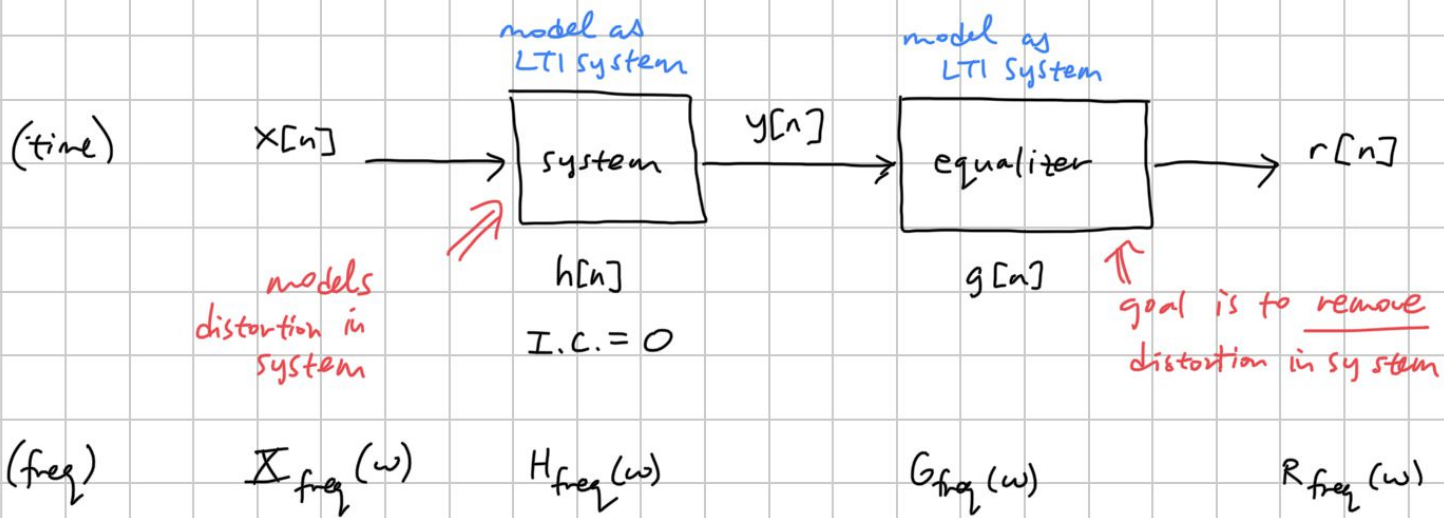 model as
LTI system
model as
LTI system
(time)
x[n]
system
y[n]
equalizer
r[n]
h[n]
I.C. = 0
g[n]
models
distortion in
system
goal is to remove
distortion in system
(freq)
X freq (ω)
H freq (ω)
G freq (ω)
R freq (ω)